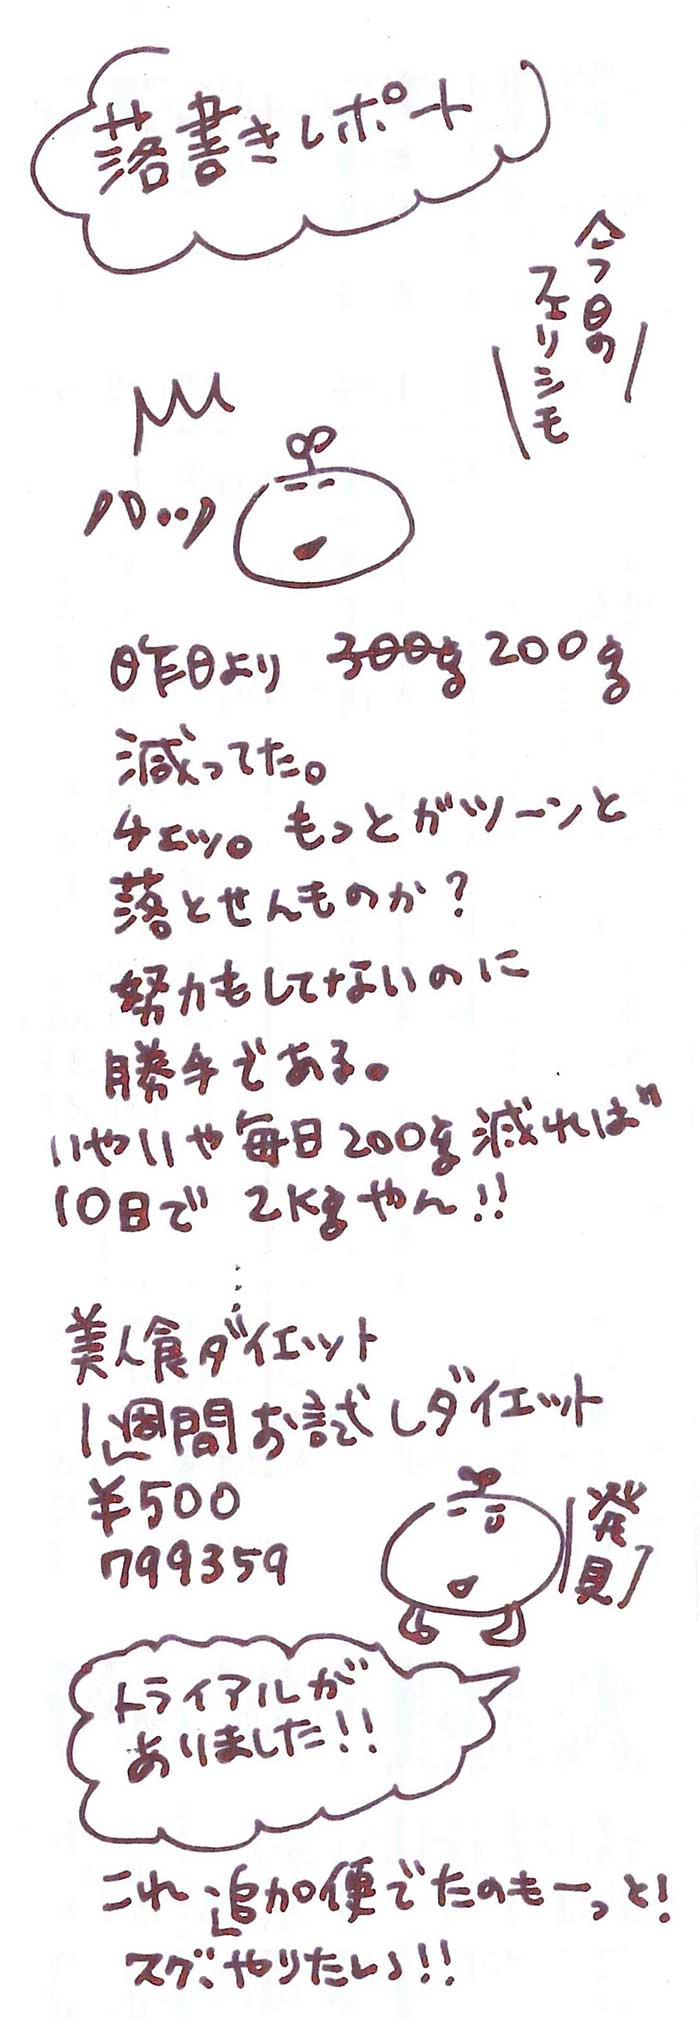 落書きレポート
今日の
フェリシモ
パッ
昨日より 300g 200g
減ってた。
チェッ。もっとガツーンと
落とせんものか？
努力もしてないのに
勝手である。
いやいや毎日200g減れば
10日で 2Kgやん!!
美人食ダイエット
1週間お試しダイエット
¥500
799359
発見
トライアルが
ありました!!
これ追加便でたのもーっと!
スグ、やりたい!!